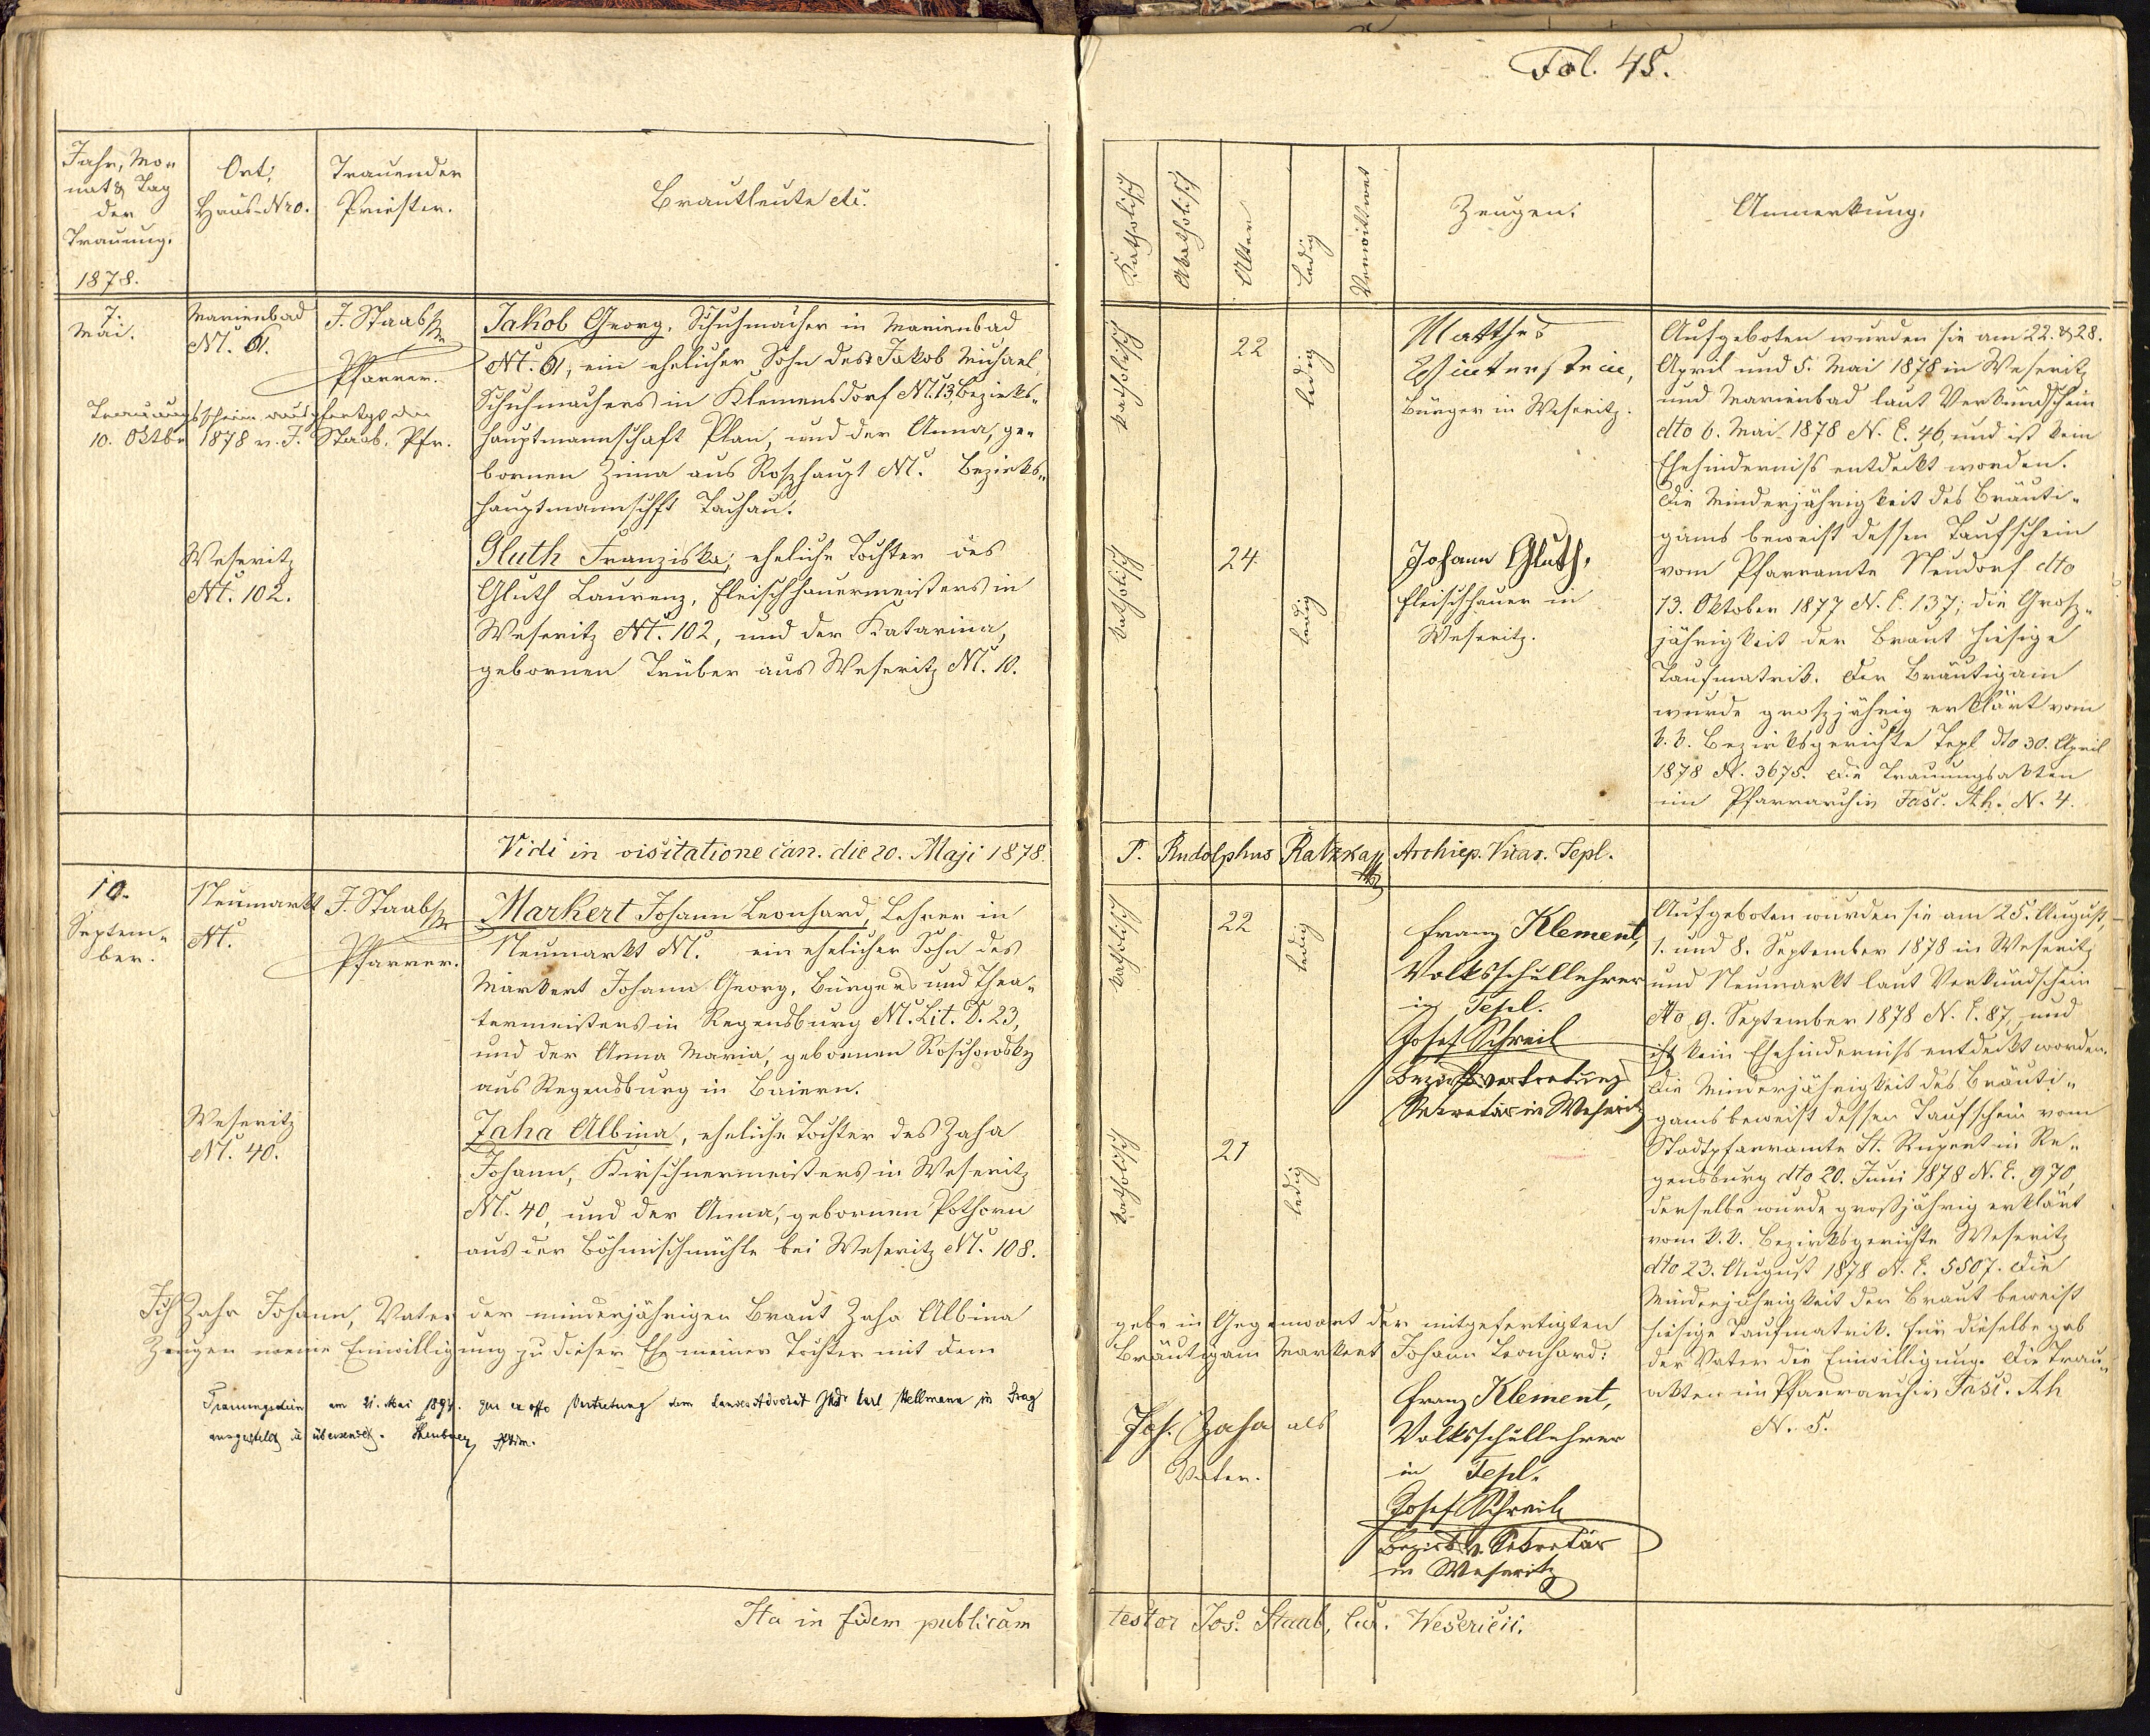 Fol. 45.
Jahr, Mo-
nat & Tag
der
Trauung.
1878.
Ort,
Haus-Nro.
Trauender
Priester.
Brautleute etc.
Katholisch
Akatholisch
Alter
Ledig
Verwittwet
Zeugen.
Anmerkung.
7.
Mai.
Marienbad
N. 61.
J. Staab
Pfarrer.
Trauungsschein ausgefertigt den
10. Oktbr 1878 v. J. Staab, Pfr.
Jakob Georg, Schuhmacher in Marienbad
N. 61, ein ehelicher Sohn des Jakob Michael,
Schuhmachers in Klemensdorf N. 13, Bezirks-
hauptmannschaft Plan, und der Anna, ge-
bornen Zinna aus Roszhaupt N. Bezirks-
hauptmannschft Tachau.
Weseritz
N. 102.
Gluth Franziska, eheliche Tochter des
Gluth Laurenz, Fleischhauermeisters in
Weseritz N. 102, und der Katarina,
gebornen Trüber aus Weseritz N. 10.
katholisch
22
ledig
Matthes
Winterstein,
Bürger in Weseritz.
katholisch
24
ledig
Johann Gluth,
Fleischhauer in
Weseritz.
Aufgeboten wurden sie am 22. & 28.
April und 5. Mai 1878 in Weseritz
und Marienbad laut Verkündschein
dto 6. Mai 1878 N. E. 46, und ist kein
Ehehinderniss entdeckt worden.
Die Minderjährigkeit des Bräuti-
gams beweist dessen Taufschein
vom Pfarramte Neudorf dto
13. Oktober 1877 N. E. 137; die Grosz-
jährigkeit der Braut hiesige
Taufmatrik. Der Bräutigam
wurde groszjährig erklärt vom
k. k. Bezirksgerichte Tepl dto 30. April
1878 N. 3675. Die Trauungsakten
im Pfarrarchiv Fasc. Ah. N. 4.
Vidi in visitatione can. die 20. Maji 1878. P. Rudolphus Ratzka Archiep. Vicar. Tepl.
10.
Septem-
ber.
Neumarkt
N.
J. Staab
Pfarrer.
Markert Johann Leonhard, Lehrer in
Neumarkt N. ein ehelicher Sohn des
Markert Johann Georg, Bürgers und Thea-
termeisters in Regensburg N. Lit. D. 23,
und der Anna Maria, gebornen Roschowsky
aus Regensburg in Baiern.
Weseritz
N. 40.
Zaha Albina, eheliche Tochter des Zaha
Johann, Kirschnermeisters in Weseritz
N. 40, und der Anna, gebornen Pothorn
aus der Böhmischmühle bei Weseritz N. 108.
katholisch
22
ledig
Franz Klement,
Volksschullehrer
in Tepl.
Josef Schreil
Bezirksvertretungs
Sekretär in Weseritz
katholisch
21
ledig
Aufgeboten wurden sie am 25. August,
1. und 8. September 1878 in Weseritz
und Neumarkt laut Verkündschein
dto 9. September 1878 N. E. 87, und
ist kein Ehehinderniss entdeckt worden.
Die Minderjährigkeit des Bräuti-
gams beweist dessen Taufschein vom
Stadtpfarramte St. Rupert in Re-
gensburg dto 20. Juni 1878 N. E. 970,
derselbe wurde großjährig erklärt
vom k. k. Bezirksgerichte Weseritz
dto 23. August 1878 N. E. 5507. Die
Minderjährigkeit der Braut beweist
hiesige Taufmatrik. Für dieselbe gab
der Vater die Einwilligung. Die Trau-
akten im Pfarrarchiv Fasc. Ah
N. 5.
Ich Zaha Johann, Vater der minderjährigen Braut Zaha Albina gebe in Gegenwart der mitgefertigten
Zeugen meine Einwilligung zu dieser Ehe meiner Tochter mit dem Bräutigam Markert Johann Leonhard:
Trauungsschein am 21. Mai 1897. zur ex offo Vertretung dem Landes Advokat JUDr Karl Mellmann in Prag
ausgestellt u übersendet.
Joh. Zaha als
Vater.
Franz Klement,
Volksschullehrer
in Tepl.
Josef Schreil
Bezirks v. Sekretär
in Weseritz
Ita in fidem publicam testor Jos. Staab, Cur. Wesericii.